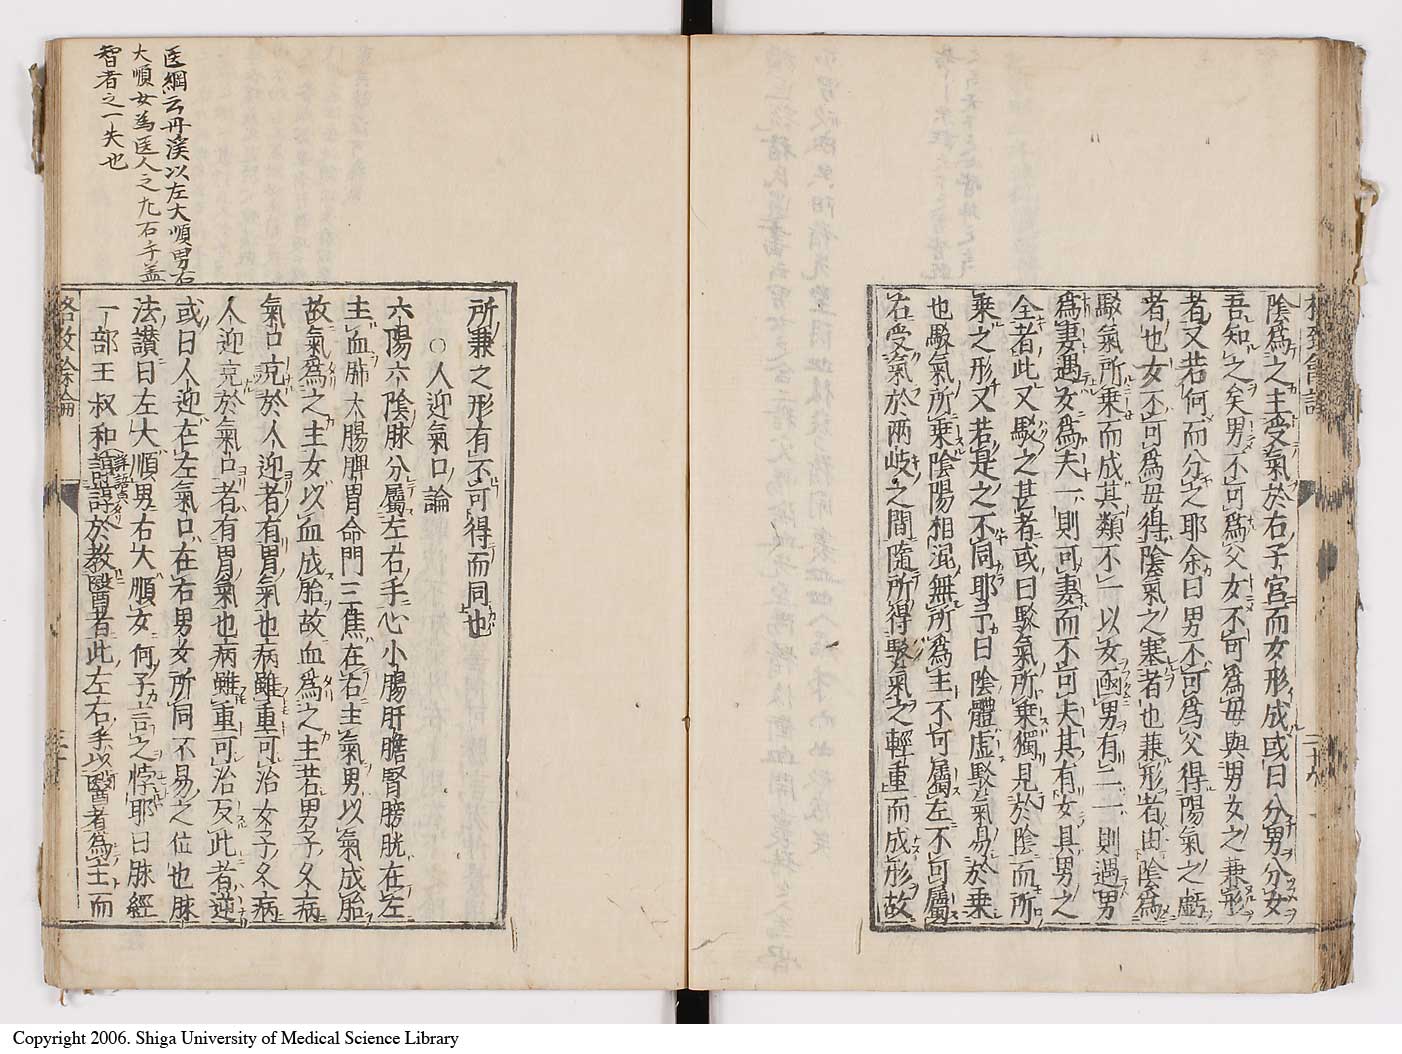 陰爲之主受氣於右子宮而女形成或曰分男分女
吾知之矣男不可爲父女不可爲母與男女之兼形
者又若何而分之耶余曰男不可爲父得陽氣之虧
者也女不可爲母得陰氣之塞者也兼形者由陰爲
駁氣所乗而成其類不一以女凾男有二一則遇男
爲妻遇女爲夫一則可妻而不可夫其有女具男之
全者此又駁之甚者或曰駁氣所乗獨見於陰而所
乗之形又若是之不同耶予曰陰體虚駁氣易於乗
也駁氣所乗陰陽相混無所爲主不可屬左不可屬
右受氣於兩岐之間隨所得駁氣之輕重而成形故
所兼之形有不可得而同也
○人迎氣口論
六陽六陰脉分屬左右手心小腸肝膽腎膀胱在左
主血肺大腸脾胃命門三焦在右主氣男以氣成胎
故氣爲之主女以血成胎故血爲之主若男子久病
氣口充於人迎者有胃氣也病雖重可治女子久病
人迎充於氣口者有胃氣也病雖重可治反此者逆
或曰人迎在左氣口在右男女所同不易之位也脉
法讃曰左大順男右大順女何子言之悖耶曰脉經
一部王叔和諄諄於教醫者此左右手以醫者爲主而
格致餘論
医綱云丹溪以左大順男右
大順女為医人之左右手盖
智者之一失也